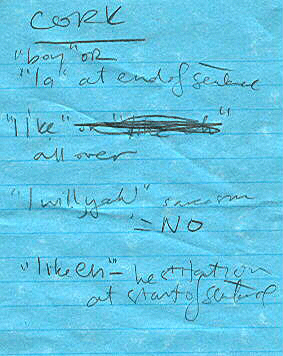 CORK
"boy" OR
"la" at end of sentence
"like" or "
all over
"I will yah" sarcasm
= NO
"like eh" – hesitation
at start of sentence